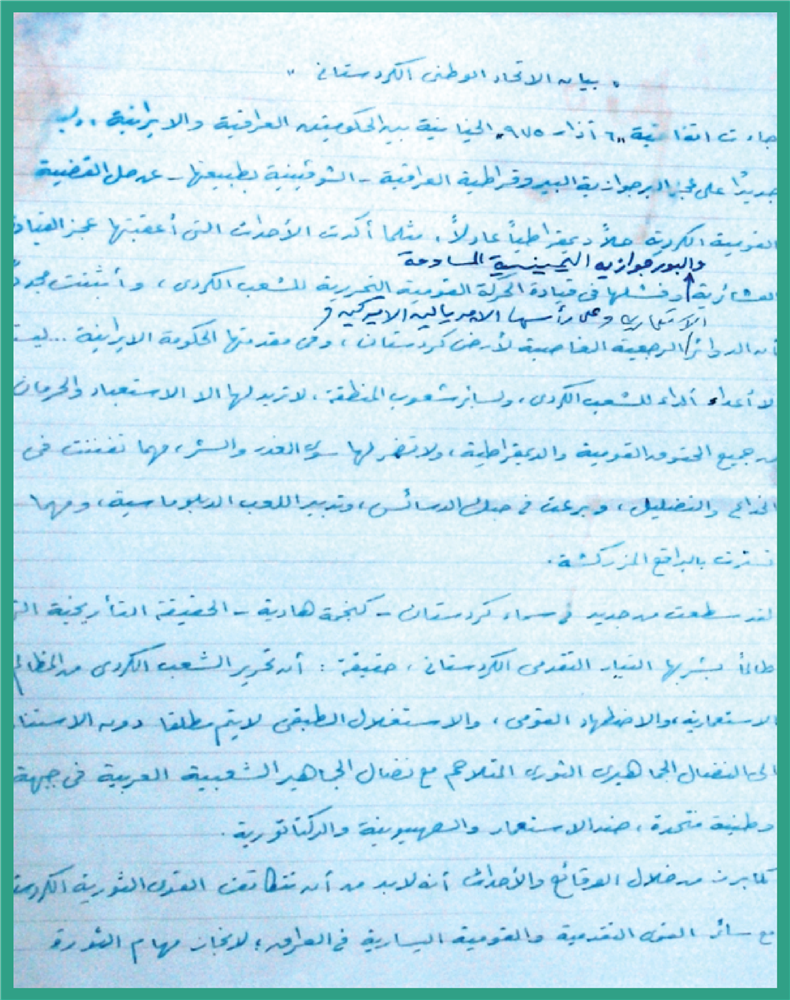 « بيان الاتحاد الوطني الكردستاني »
جاءت اتفاقية „٦ آذار ٩٧٥„ الخيانية بين الحكومتين العراقية والايرانية ..
جديدًا على عجز البرجوازية البيروقراطية العراقية - الشوفينية بطبيعتها - عن حل القضية
القومية الكردية حلاً ديمقراطياً عادلاً. مثلما أكدت الأحداث التي أعقبتها عجز القيادة
والبورجوازيه اليمينية المساومة
العشائرية وفشلها في قيادة الحركة القومية التحررية للشعب الكردي، وأثبتت مجدد
الاستعمارية وعلى رأسها الامبريالية الاميركية و
أن الدوائر الرجعية الغاصبة لأرض كردستان، وفي مقدمتها الحكومة الايرانية ... ليست
الا أعداء ألداء للشعب الكردي، ولسائر شعوب المنطقة. لا تريد لها الا الاستعباد والحرمان
من جميع الحقوق القومية والديمقراطية، ولا تضمر لها سوى الغدر والشر، مهما تفننت في
الخداع والتضليل، وبرعت في حبك الدسائس، وتدبير اللعب الدبلوماسية، ومهما
تسترت بالبراقع المزركشة.
لقد سطعت من جديد في سماء كردستان - كنجمة هادية - الحقيقة التأريخية التي
طالما بشر بها التيار التقدمي الكردستاني، حقيقة : أن تحرير الشعب الكردي من المظالم
الاستعمارية، والاضطهاد القومي، والاستغلال الطبقي لا يتم مطلقا دون الاستناد
الى النضال الجماهيري الثوري المتلاحم مع نضال الجماهير الشعبية العربية في جبهة
وطنية متحدة، ضد الاستعمار والصهيونية والدكتاتورية.
كما برز من خلال الوقائع والأحداث أنه لابد من أن تتكاتف القوى الثورية الكردستانية
مع سائر القوى التقدمية والقومية اليسارية في العراق؛ لانجاز مهام الثورة